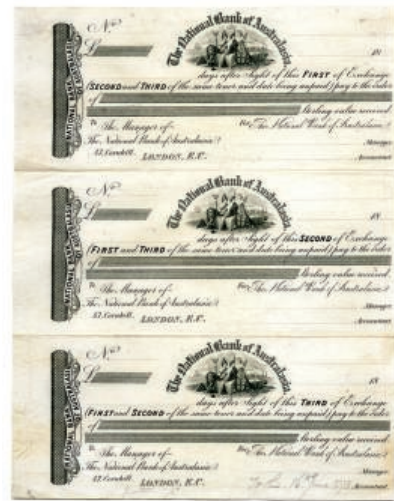 No
The National Bank of Australasia.
£
18
days after Sight of this FIRST of Exchange
(SECOND and THIRD of the same tenor and date being unpaid) pay to the order
of
Sterling value received
To The Manager of
For The National Bank of Australasia
The National Bank of Australasia
Manager
LONDON, E.C.
Accountant
NATIONAL BANK OF AUSTRALASIA
No
The National Bank of Australasia.
£
18
days after Sight of this SECOND of Exchange
(FIRST and THIRD of the same tenor and date being unpaid) pay to the order
of
Sterling value received
To The Manager of
For The National Bank of Australasia
The National Bank of Australasia
Manager
LONDON, E.C.
Accountant
NATIONAL BANK OF AUSTRALASIA
No
The National Bank of Australasia.
£
18
days after Sight of this THIRD of Exchange
(FIRST and SECOND of the same tenor and date being unpaid) pay to the order
of
Sterling value received
To The Manager of
For The National Bank of Australasia
The National Bank of Australasia
Manager
LONDON, E.C.
Accountant
NATIONAL BANK OF AUSTRALASIA